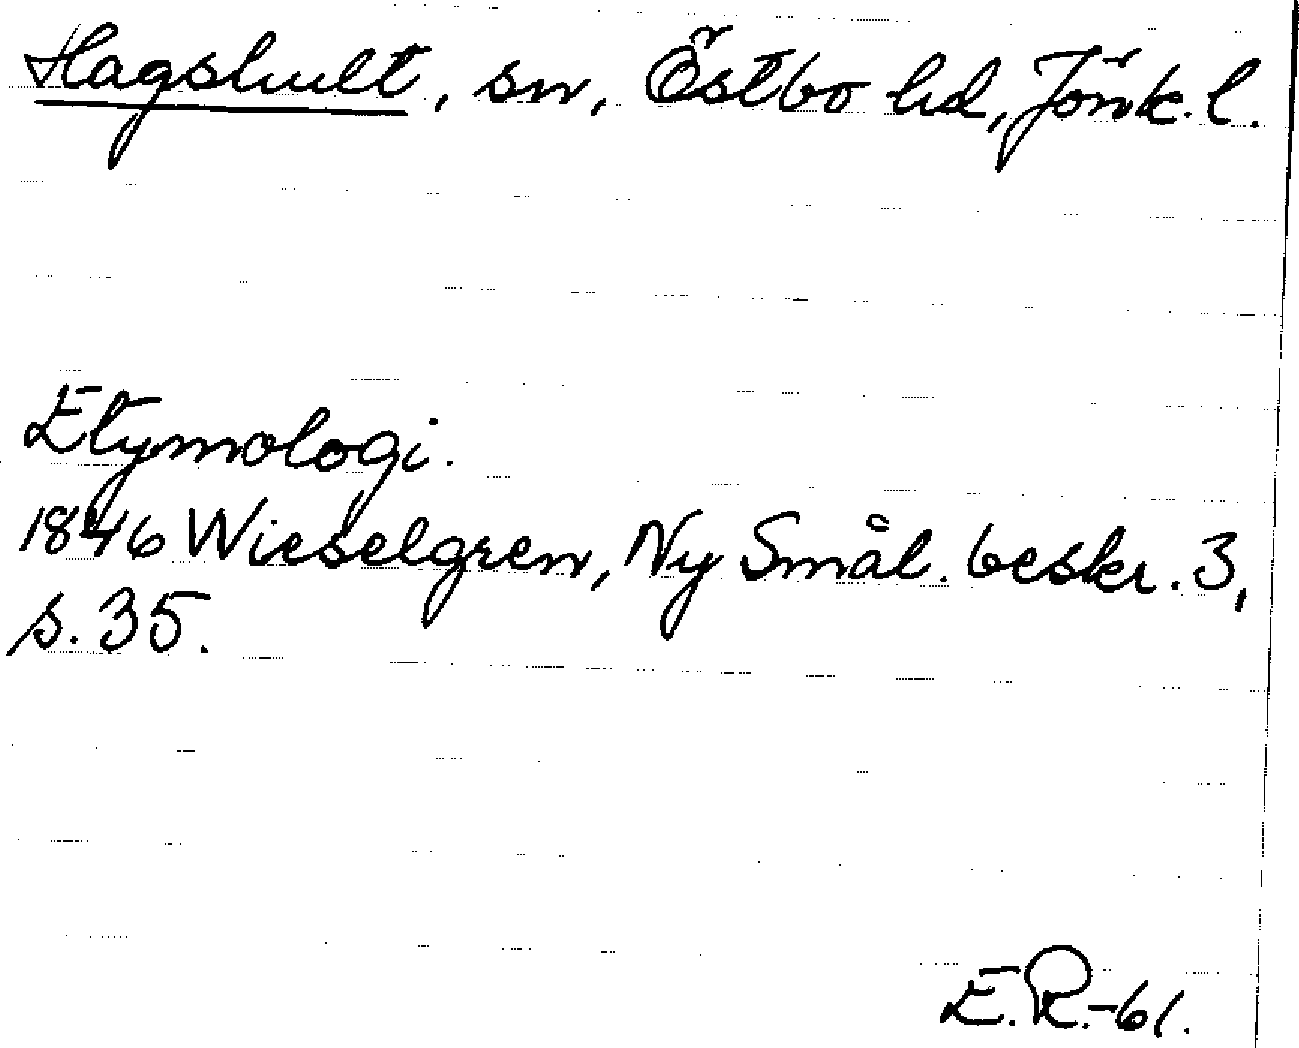 Hagshult, sn, Östbo hd, Jönk. l.
Etymologi.
1846 Wieselgren, Ny Smål. beskr. 3,
s. 35.
E.R.-61.